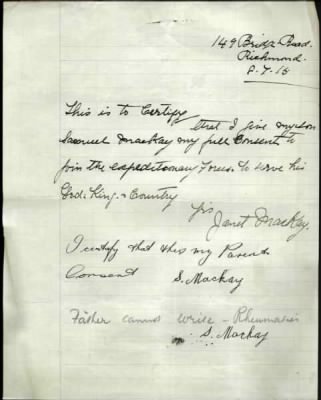 149 Bridge Road.
Richmond.
8.7.15
This is to Certify
that I give my son
Samuel Mackay my full Consent to
join the expeditionary Forces to serve his
God. King. & Country
Yrs
Janet Mackay
I certify that this my Parents
Consent
S. Mackay
Father cannot write - Rheumatics
S. Mackay